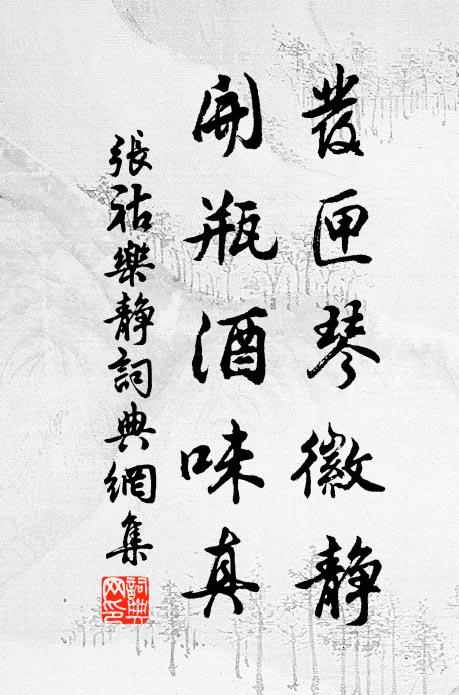 發匣琴徽静
開瓶酒味真
張祜樂静詞典網集
詞典網印